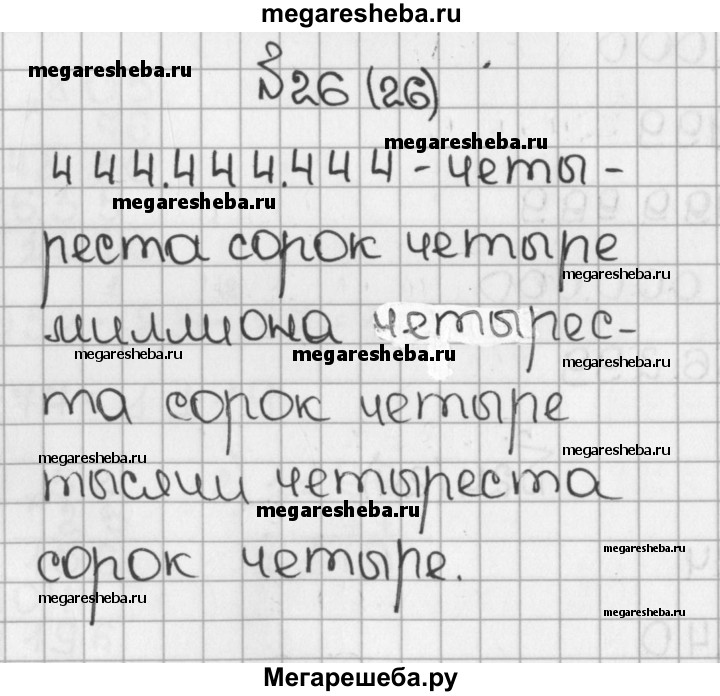 megaresheba.ru
megaresheba.ru
№26 (26)
megaresheba.ru
444.444.444 - четы-
megaresheba.ru
реста сорок четыре
megaresheba.ru
миллиона четырес-
megaresheba.ru megaresheba.ru
та сорок четыре
megaresheba.ru megaresheba.ru
тысячи четыреста
megaresheba.ru
сорок четыре.
megaresheba.ru
megaresheba.ru
megaresheba.ru
Мегарешеба.ру